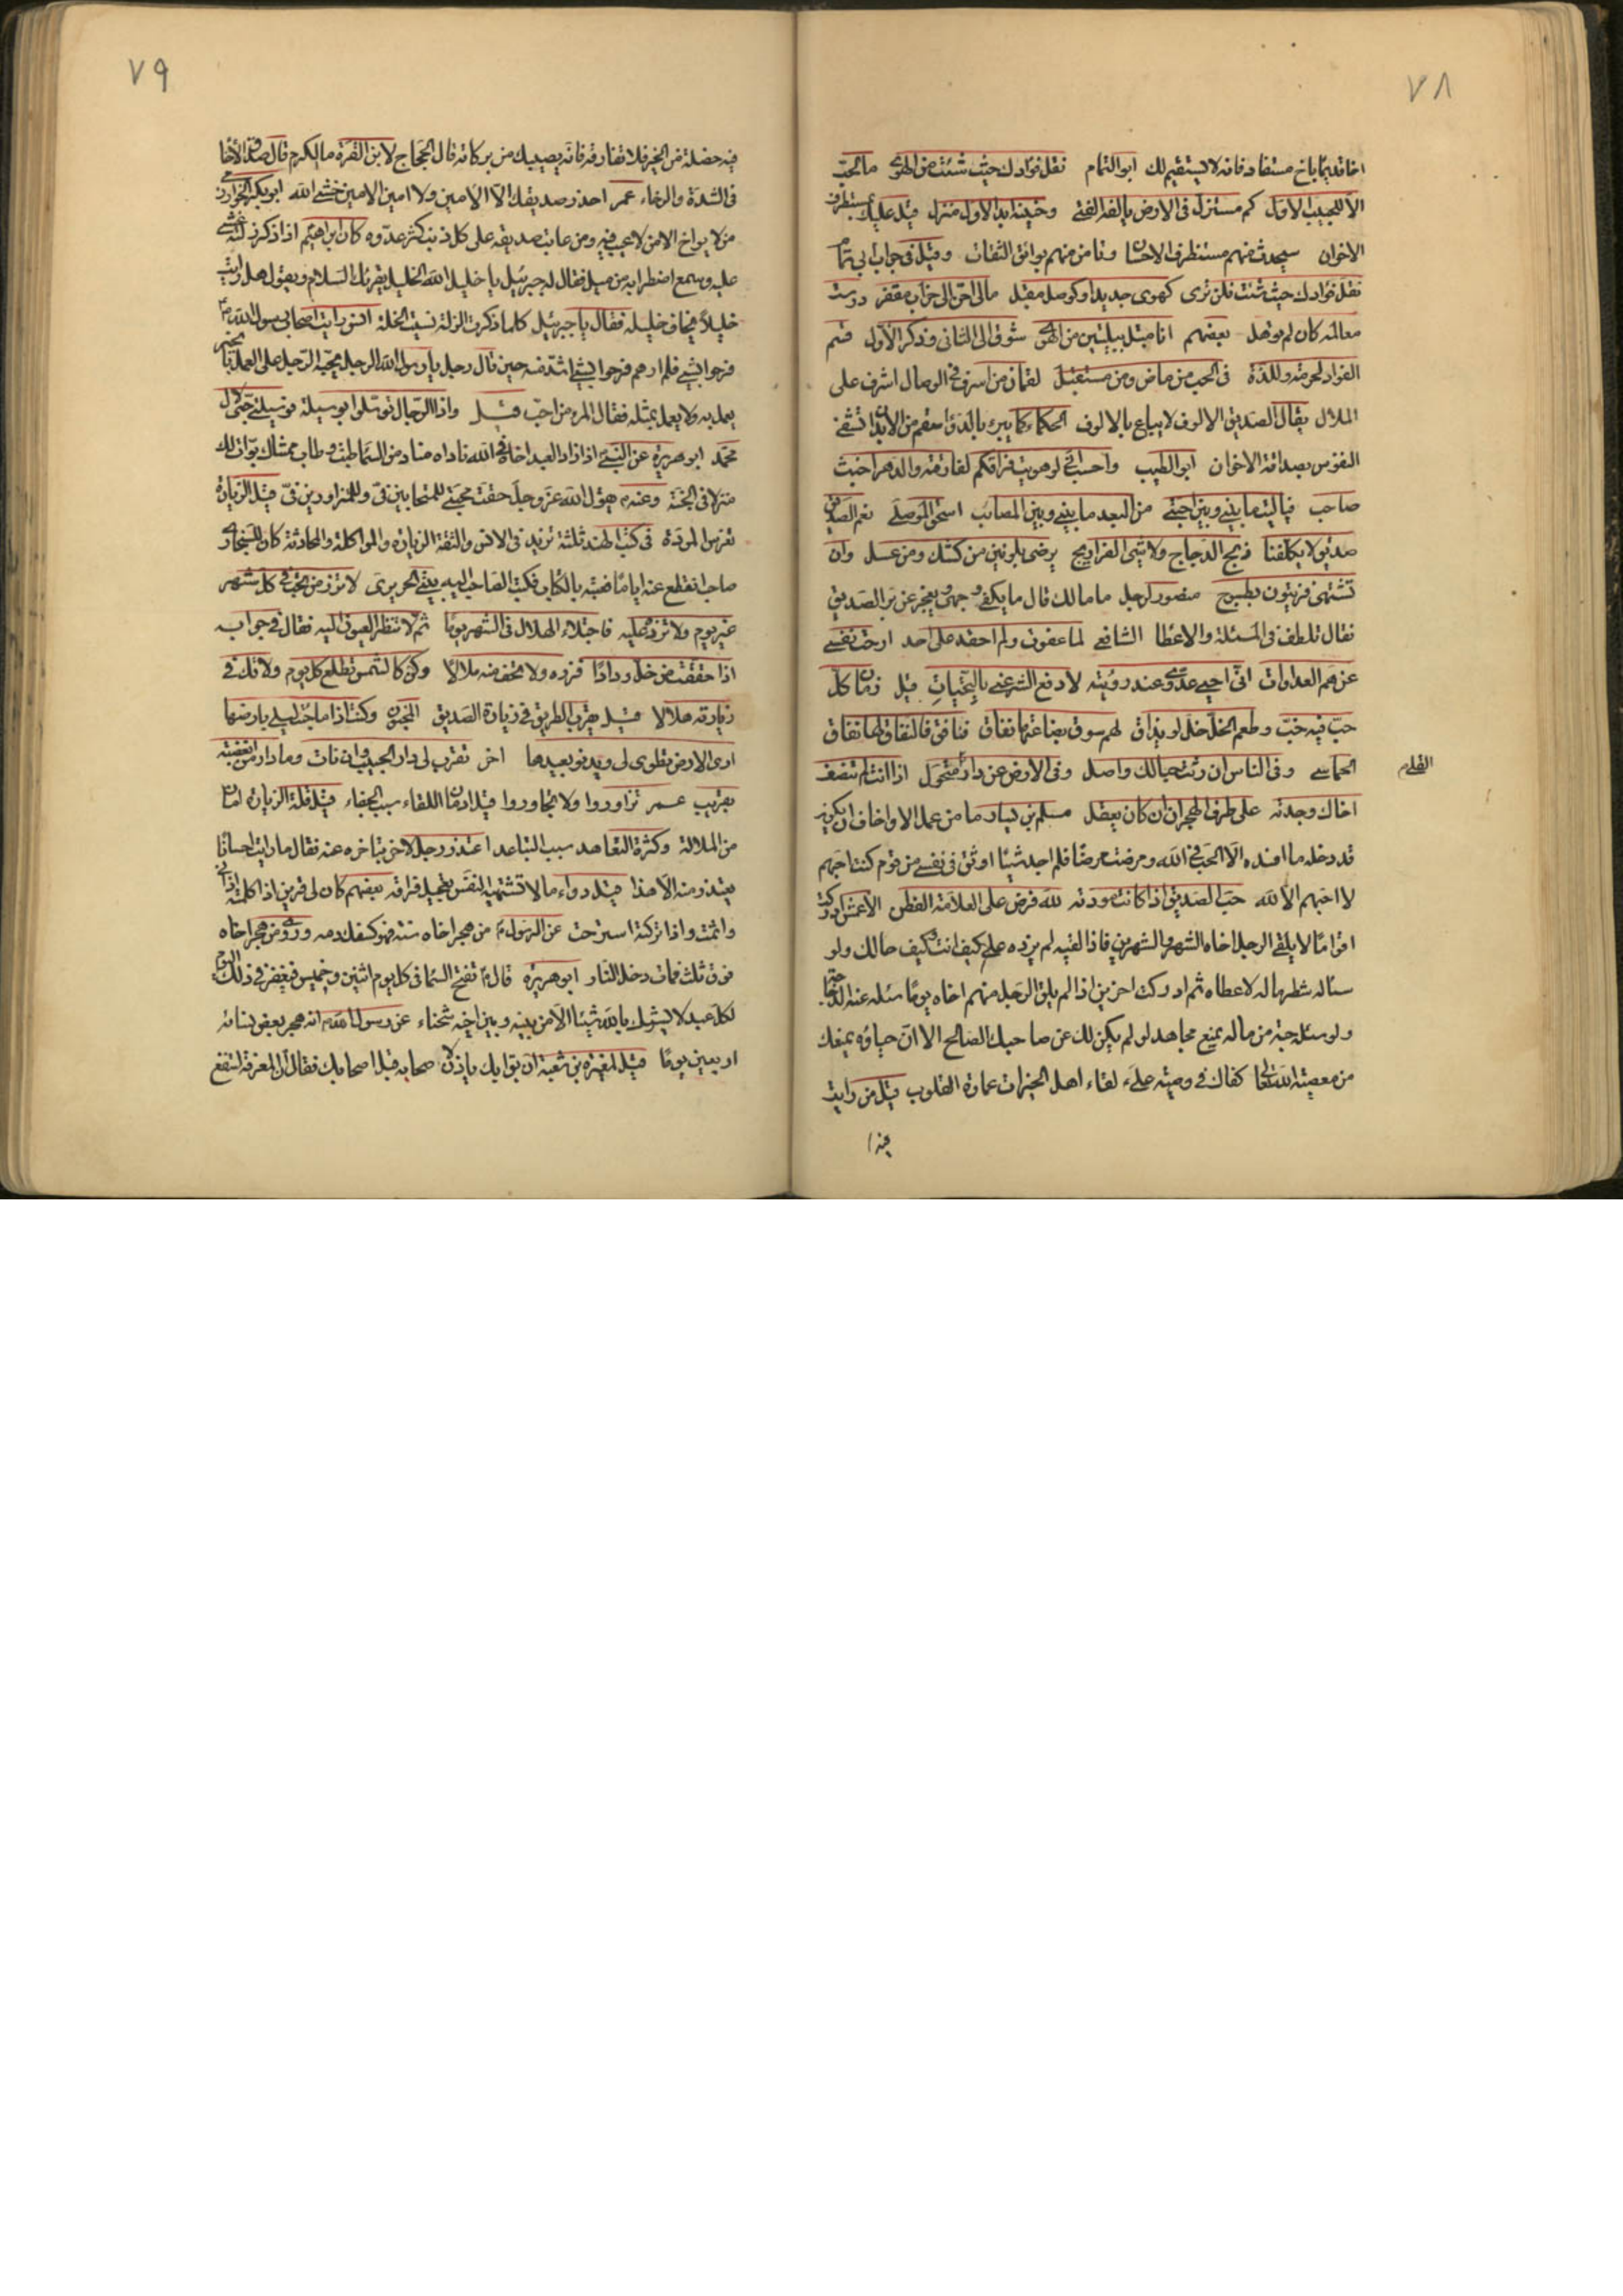 ٧٨
اخا قديما باخ مستفاد فانه لا يستقيم لك ابو التمام نقل فؤادك حيث شئت من الهوى ما الحب
الا للحبيب الاول كم منزل فى الارض يالفه الفتى وحنينه ابدا لاول منزل قيل عليك بمستطرف
الاخوان سيحدث منهم مستطرف الاحسان وتامن منهم بوائق الثقات وقيل فى جواب ابى تمام
نقل فؤادك حيث شئت فلن ترى كهوى جديد او كوصل مقبل مالى احن الى خراب مقفر درست
معالمه كان لم يوهل بعضهم انا مبتل ببليتين من الهوى شوق الى الثانى وذكر الاول قسم
الفؤاد لحرمة وللذة فى الحب من ماض ومن مستقبل لقمان من اسرف فى الوصال اشرف على
الملال يقال الصديق الالوف لا يباع بالالوف الحكماء كما يبرء بالدواء سقم من الابدان تشفى
النفوس بصداقة الاخوان ابو الطيب واحسب انى لو هويت فراقكم لفارقته والدهر اخبث
صاحب فيا ليت ما بينى وبين احبتى من البعد ما بينى وبين المصائب اسحق الموصلى نعم الصديق
صديق لا يكلفنا ذبح الدجاج ولا شى الفراريج يرضى بلونين من كشك ومن عسل وان
تشتهى فزيتون بطسوج منصور لرجل ما مالك قال ما يكفى وجهى ويعجز عن بر الصديق
فقال تلطف فى المسئلة والاعطا الشافعى لما عفوت ولم احقد على احد ارحت نفسى
عن هم العداوات انى احيى عدوى عند رؤيته لادفع الشر عنى بالتحيات قيل زمان كل
حب فيه خب وطعم الخل خل لو يذاق لهم سوق بضاعتها نفاق فنافق فالنفاق لها نفاق
الحماسى وفى الناس ان رثت حبالك واصل وفى الارض عن دار القلى متحول اذا انت لم تنصف
اخاك وجدته على طرف الهجران ان كان يعقل مسلم بن يسار ما من عمل الا واخاف ان يكون
قد دخله ما افسده الا الحب فى الله ومرضت مرضا فلم اجد شيئا اوثق فى نفسى من قوم كنت احبهم
لا احبهم الا لله حب الصديق اذا كانت مودته لله فرض على العلامة الفطن الاعمش ادركت
اقواما لا يلقى الرجل اخاه الشهر والشهرين فاذا لقيه لم يزده على كيف انت وكيف حالك ولو
سئاله شطر ماله لاعطاه ثم ادركت اخرين اذا لم يلق الرجل منهم اخاه يوما سئله عنه حتى الدجاج
ولو سئل حبة من ماله يمنع مجاهد لو لم يكن لك عن صاحبك الصالح الا ان حياؤه يمنعك
من معصية الله تعالى كفاك فى وصية على لقاء اهل الخيرات عمارة القلوب قيل من رايت
فيه
٧٩
فيه خصلة من الخير فلا تفارقه فانه يصيبك من بركاته قال الحجاج لابن القرة ما الكرم قال صدق الاخا
فى الشدة والرخاء عمر احذر صديقك الا الامين ولا امين الا من خشى الله ابو بكر الخوارزمى
من لا يواخ الا من لا عيب فيه ومن عاتب صديقه على كل ذنب كثر عدوه كان ابراهيم اذا ذكر زلته غشى
عليه ويسمع اضطرابه من ميل فقال له جبرئيل يا خليل الله الخليل يقرئك السلام ويقول هل رايت
خليلا يخاف خليله فقال يا جبرئيل كلما ذكرت الزلة نسيت الخلة انس رايت اصحاب رسول الله
فرحوا بشى فلم ارهم فرحوا بشى اشد منه حين قال رجل يا رسول الله الرجل يحب الرجل على العمل
يعمل به ولا يعمل بمثله فقال المرء مع من احب قيل واذا الرجال توسلوا بوسيلة فوسيلتى حبى لال
محمد ابو هريرة عن النبى اذا زار العبد اخاه فى الله ناداه مناد من السماء طبت وطاب ممشاك تبوات لك
منزلا فى الجنة وعنه يقول الله عز وجل حقت محبتى للمتحابين فى وللمتزاورين فى قيل الزيارة
تغرس المودة فى كتب الهند ثلثة تزيد فى الانس والثقة الزيارة والمواكلة والمحادثة كان للسنجارى
صاحب انقطع عنه اياما فعتبه بالكتاب فكتب الصاحب اليه بيتى الحريرى لا تزر من تحب فى كل شهر
غير يوم ولا تزده عليه فاجتلاء الهلال فى الشهر يوما ثم لا تنظر العيون اليه فقال فى جوابه
اذا حققت من خل ودادا فزره ولا تخف منه ملالا وكن كالشمس تطلع كل يوم ولا تك فى
زيارته هلالا قيل يقرب الطريق فى زيارة الصديق المجنون وكنت اذا ما جئت ليلى بارضها
ارى الارض تطوى لى ويدنو بعيدها اخر تقرب لى دار الحبيب وان نات وما دار من ابغضته
بقريب عمر تزاوروا ولا تجاوروا قيل ادمان اللقاء سبب الجفاء قيل قلة الزيارة امان
من الملالة وكثرة التعاهد سبب التباعد اعتذر رجل لاخر بتاخره عنه فقال ما رايت احسانا
يعتذر منه الا هذا قيل دواء ما لا تشتهيه النفس تعجيل فراقه بعضهم كان لى قرين اذا كلمته اذانى
واثمت واذا تركته استرحت عن الرسول من هجر اخاه سنة فهو كسفك دمه وروى من هجر اخاه
فوق ثلث فمات دخل النار ابو هريرة قال تفتح السماء فى كل يوم اثنين وخميس فيغفر فى ذلك اليوم
لكل عبد لا يشرك بالله شيئا الا من بينه وبين اخيه شحناء عن رسول الله انه هجر بعض نسائه
اربعين يوما قيل لمغيرة بن شعبة ان بوابك ياذن لاصحابه قبل اصحابك فقال ان المعرفة لتنفع